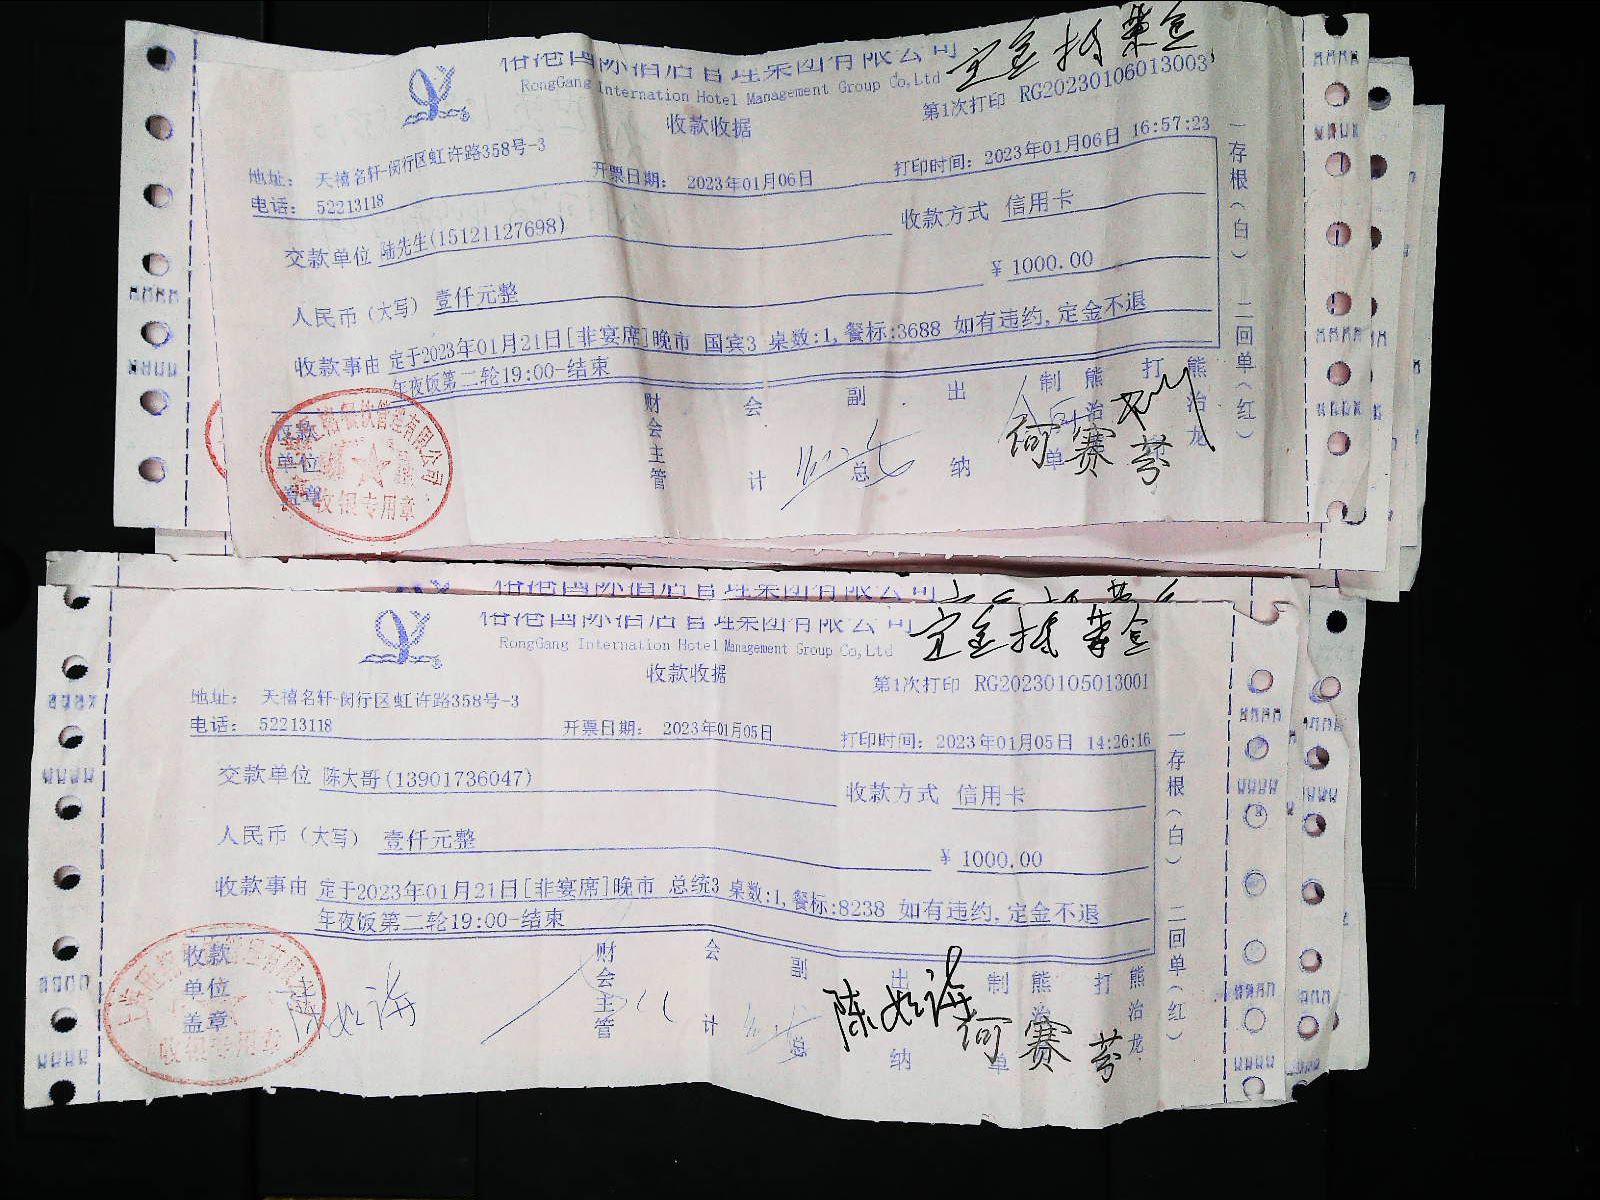 RongGang International Hotel Management Group Co,Ltd
收款收据
第1次打印 RG20230106013003
地址: 天禧名轩-闵行区虹许路358号-3
电话: 52213118
开票日期: 2023年01月06日
打印时间: 2023年01月06日 16:57:23
交款单位 陆先生(15121127698)
收款方式 信用卡
人民币(大写) 壹仟元整
¥ 1000.00
收款事由 定于2023年01月21日[非宴席]晚市 国宾3 桌数:1,餐标:3688 如有违约,定金不退
年夜饭第二轮19:00-结束
单位
收银专用章
财会主管
会计
副总
出纳
制单
打
熊治龙
何赛芬
一存根(白) 二回单(红)
RongGang International Hotel Management Group Co,Ltd
收款收据
第1次打印 RG20230105013001
地址: 天禧名轩-闵行区虹许路358号-3
电话: 52213118
开票日期: 2023年01月05日
打印时间: 2023年01月05日 14:26:16
交款单位 陈大哥(13901736047)
收款方式 信用卡
人民币(大写) 壹仟元整
¥ 1000.00
收款事由 定于2023年01月21日[非宴席]晚市 总统3 桌数:1,餐标:8238 如有违约,定金不退
年夜饭第二轮19:00-结束
收款单位盖章
收银专用章
财会主管
会计
副总
出纳
制单
打
熊治龙
何赛芬
一存根(白) 二回单(红)